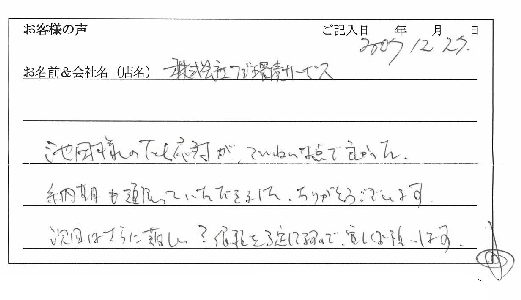 お客様の声 ご記入日 年 月 日
2007 12 25
お名前&会社名（店名） 株式会社フジ環境サービス
池田様のご応対が、ていねいな点で良かった。
納期も守っていただきました。ありがとうございます。
次回はさらに難しい？ を予定してるので、宜しくお願いします。